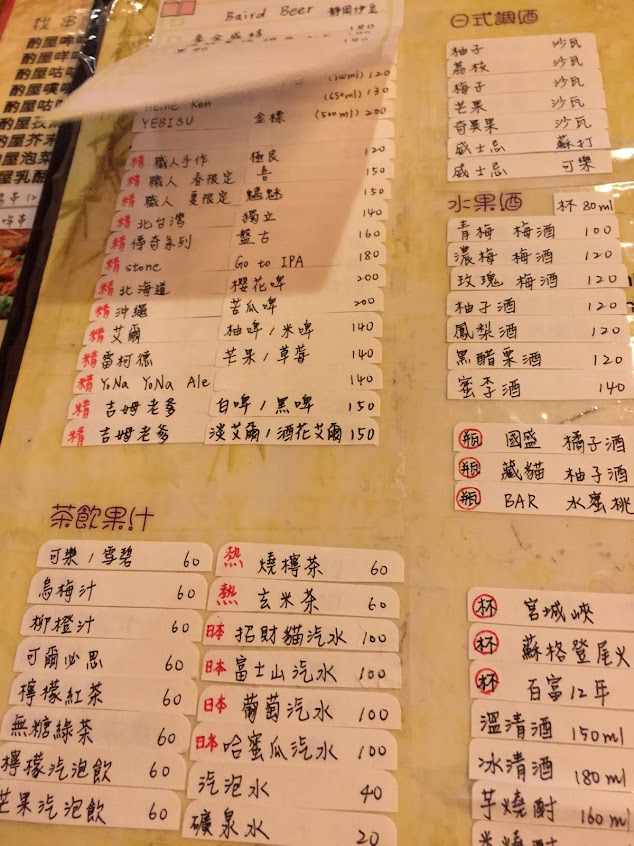 找串
酌屋
酌屋
酌屋咕
酌屋
酌屋
酌屋芥末
屋泡菜
屋乳酪
Baird Beer 靜岡伊豆
120
Heine Ken (650ml) 130
YEBISU 金標 (500ml) 200
精 職人手作 極良 120
精 職人 春限定 吾 150
精 職人 夏限定 魑魅 150
精 北台灣 獨立 140
精 傳奇系列 盤古 160
精 stone Go to IPA 180
精 北海道 櫻花啤 200
精 沖繩 苦瓜啤 200
精 艾爾 柚啤/米啤 140
精 雷柯德 芒果/草莓 140
精 YoNa YoNa Ale 140
精 吉姆老爹 白啤/黑啤 150
精 吉姆老爹 淡艾爾/酒花艾爾 150
茶飲果汁
可樂/雪碧 60
烏梅汁 60
柳橙汁 60
可爾必思 60
檸檬紅茶 60
無糖綠茶 60
檸檬汽泡飲 60
芒果汽泡飲 60
熱 燒檸茶 60
熱 玄米茶 60
日本 招財貓汽水 100
日本 富士山汽水 100
日本 葡萄汽水 100
日本 哈蜜瓜汽水 100
汽泡水 40
礦泉水 20
日式調酒
柚子 沙瓦
荔枝 沙瓦
梅子 沙瓦
芒果 沙瓦
奇異果 沙瓦
威士忌 蘇打
威士忌 可樂
水果酒 杯 80ml
青梅 梅酒 100
濃梅 梅酒 120
玫瑰 梅酒 120
柚子酒 120
鳳梨酒 120
黑醋栗酒 120
蜜李酒 140
瓶 國盛 橘子酒
瓶 藏貓 柚子酒
瓶 BAR 水蜜桃
杯 宮城峽
杯 蘇格登尾火
杯 百富12年
溫清酒 150ml
冰清酒 180ml
芋燒酎 160ml